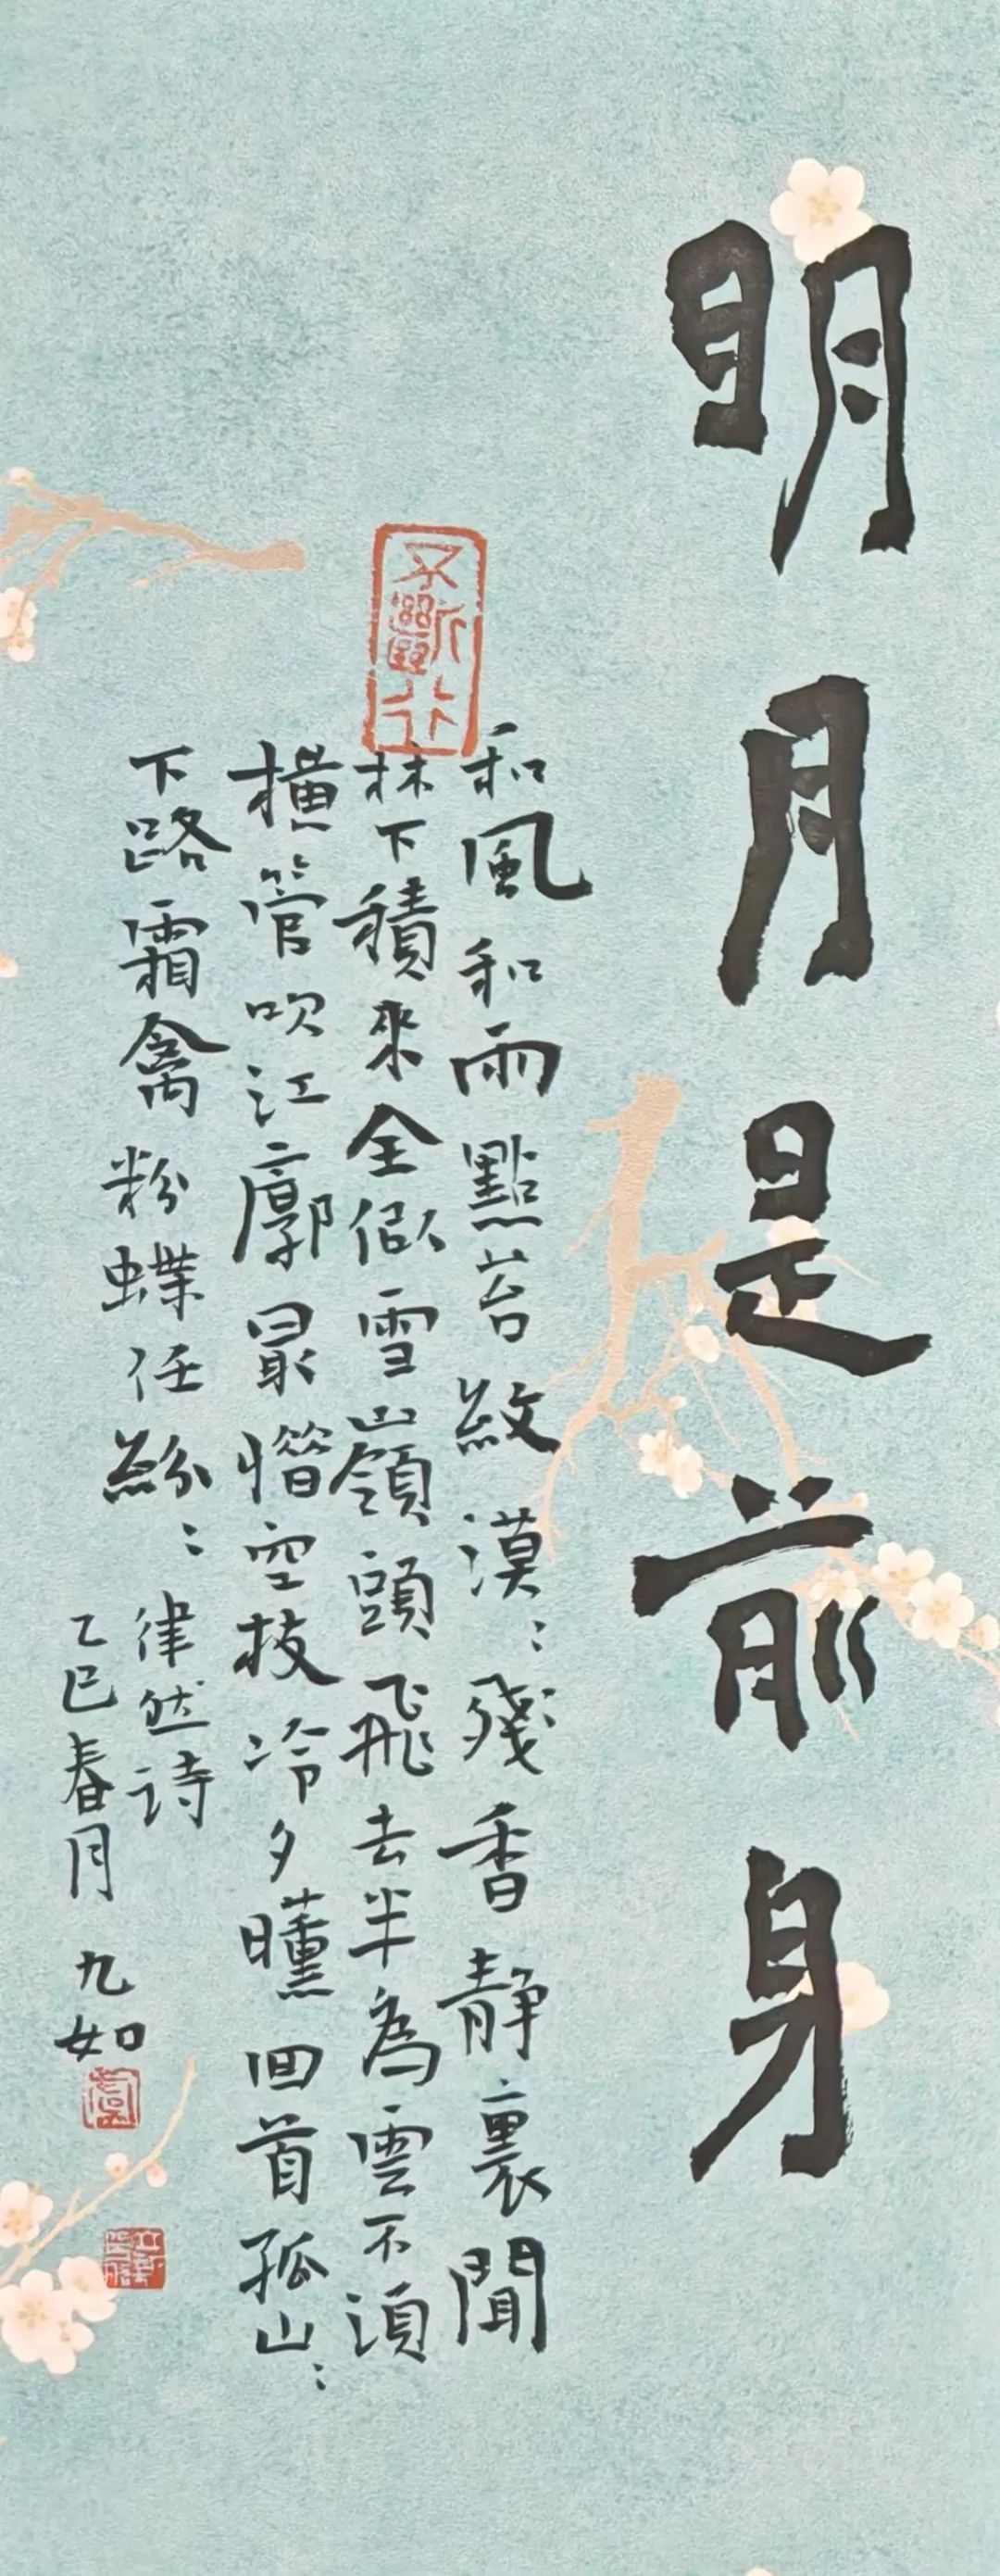 明月是前身
不斷行
和風和雨點苔紋漠〻殘香靜裏聞
林下積來全似雪嶺頭飛去半為雲不須
橫管吹江廓最惜空枝冷夕曛回首孤山〻
下路霜禽粉蝶任紛〻 律然诗
乙巳春月 九如